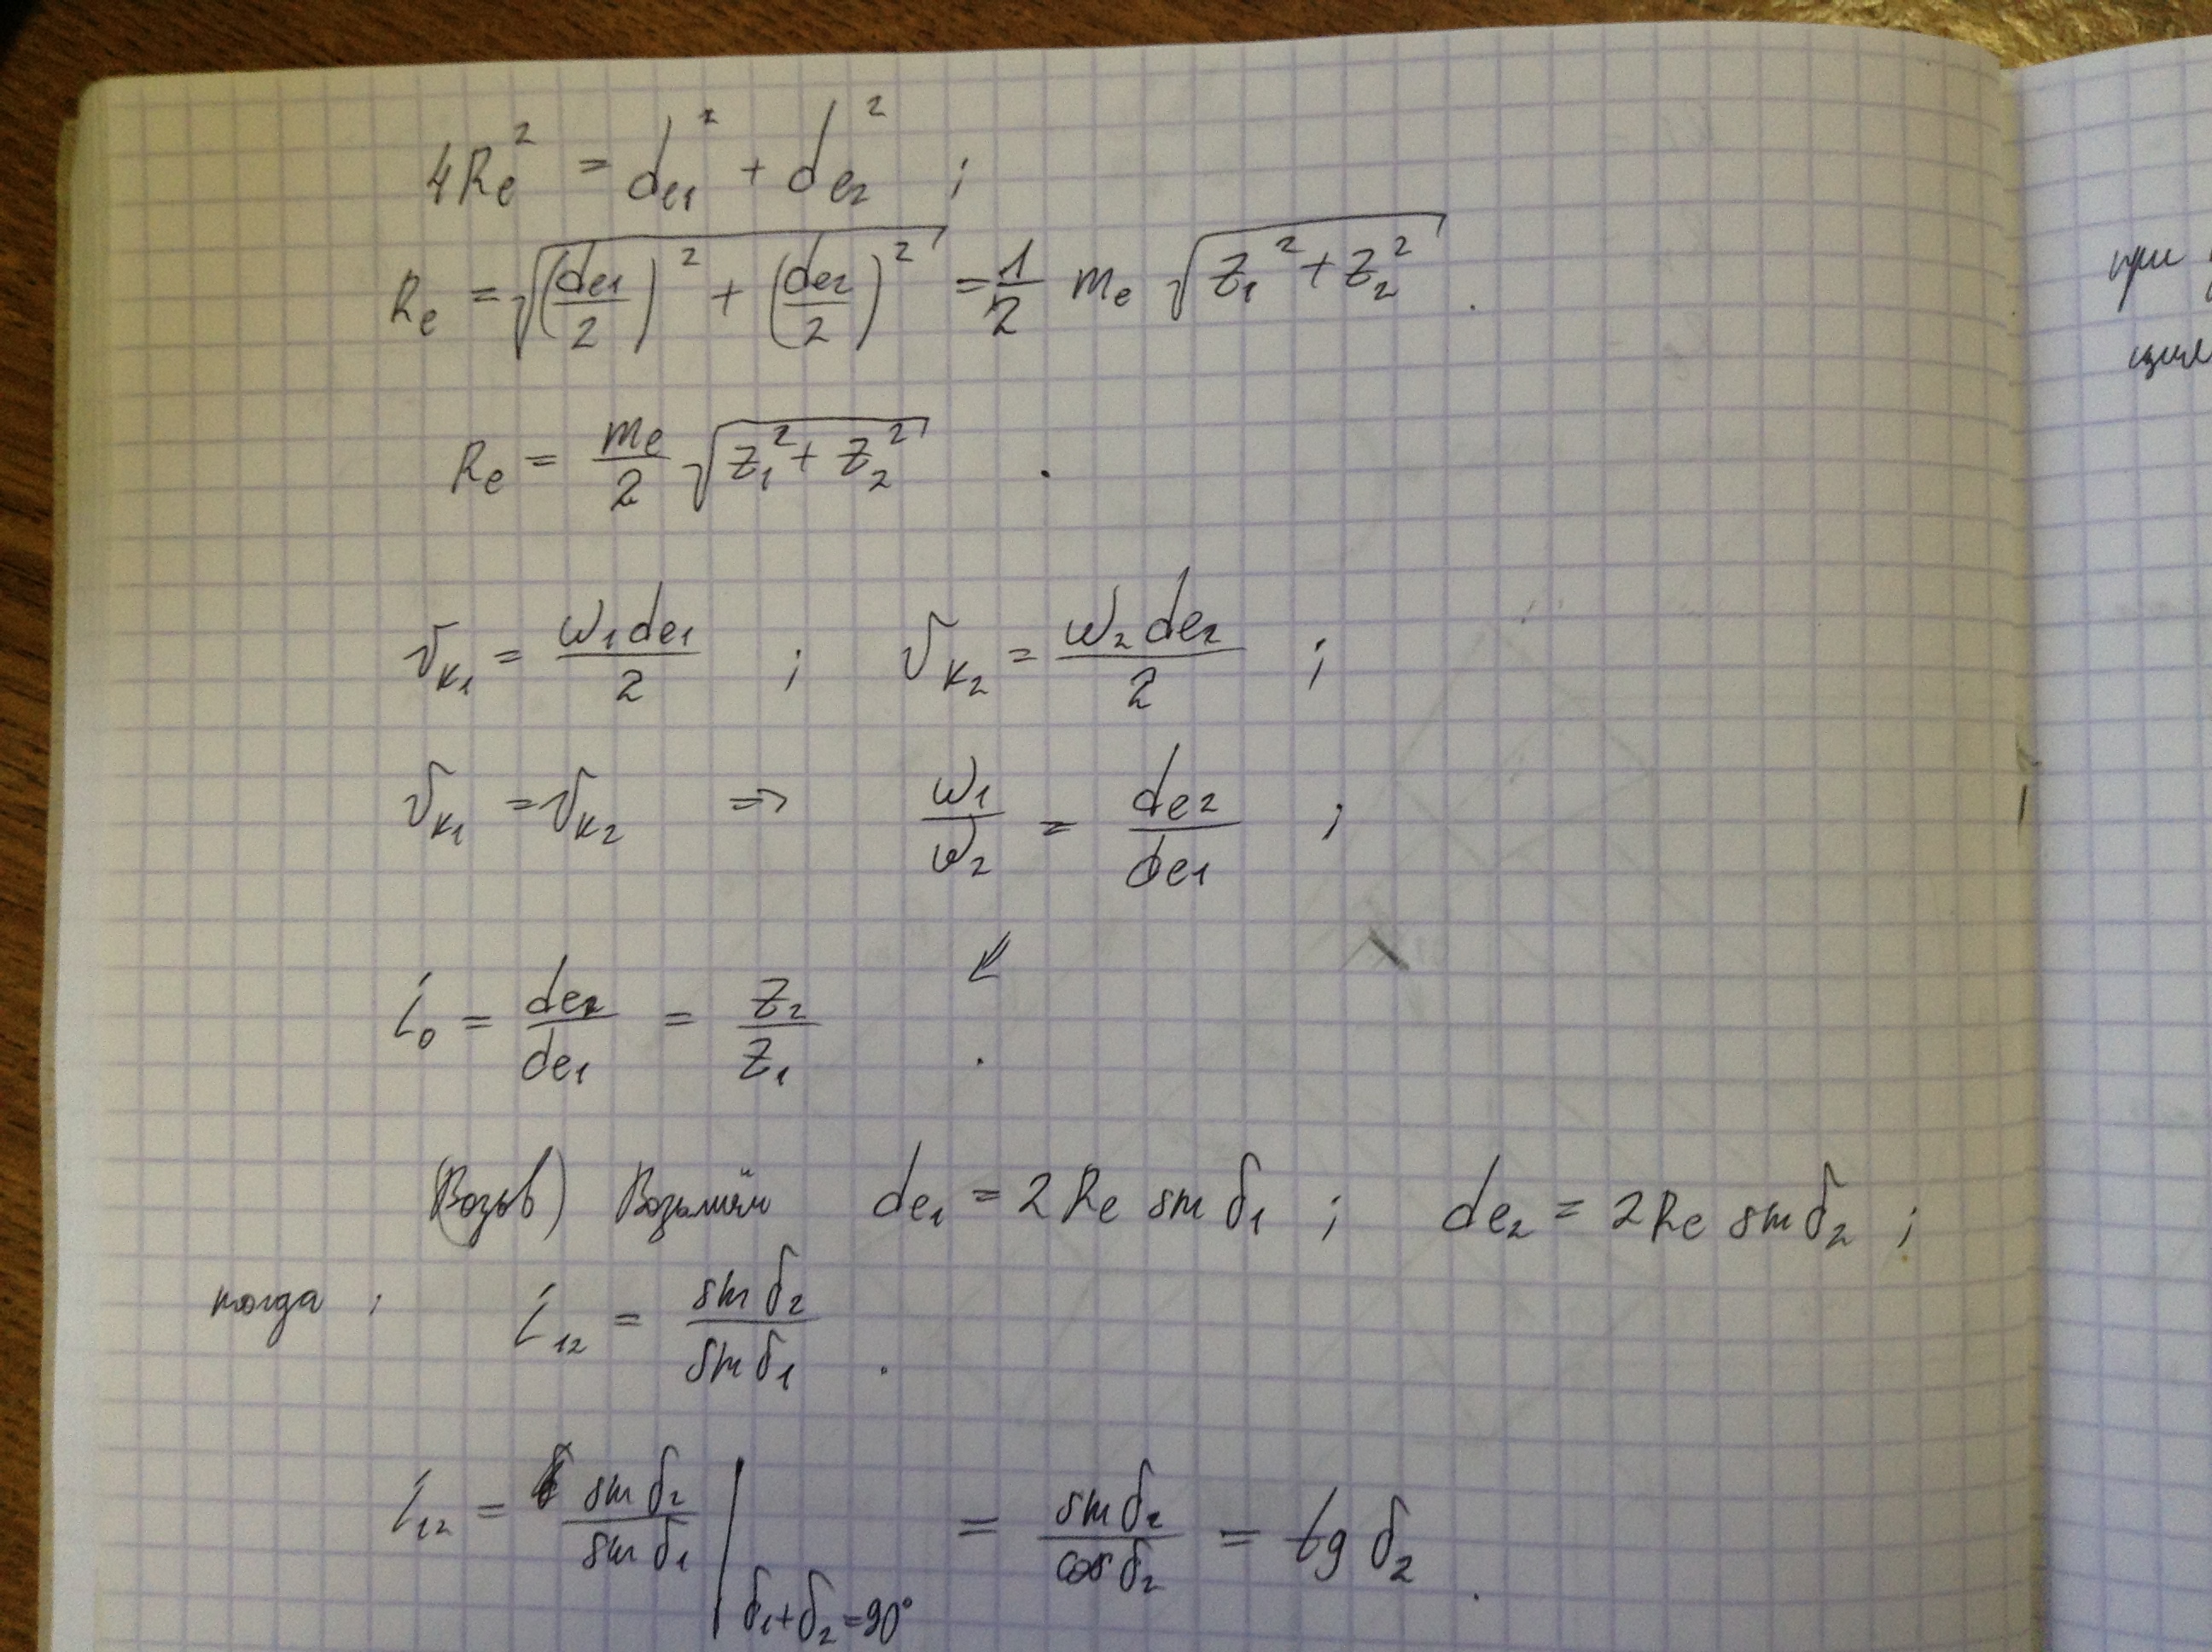 4Re² = de₁² + de₂² ;
Re = √((de₁/2)² + (de₂/2)²) = 1/2 me √(z₁² + z₂²) .
Re = me/2 √(z₁² + z₂²) .
𝑣к₁ = ω₁de₁/2 ; 𝑣к₂ = ω₂de₂/2 ;
𝑣к₁ = 𝑣к₂ => ω₁/ω₂ = de₂/de₁ ;
i₀ = de₂/de₁ = z₂/z₁ .
(Возьв) Возьмём de₁ = 2Re sin δ₁ ; de₂ = 2Re sin δ₂ ;
тогда : i₁₂ = sin δ₂/sin δ₁ .
i₁₂ = sin δ₂/sin δ₁ |δ₁+δ₂=90° = sin δ₂/cos δ₂ = tg δ₂ .
при